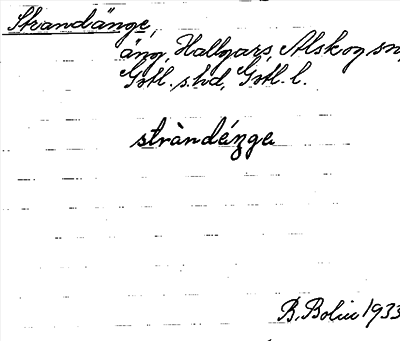 Strandänge,
äng, Hallgars, Alskog sn,
Gotl. s. hd, Gotl. l.
stràndéŋge
B. Bolin 1933